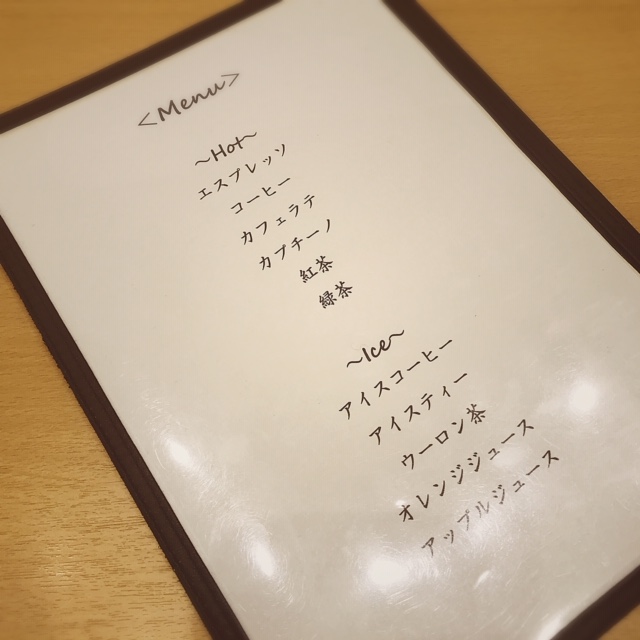 <Menu>
~Hot~
エスプレッソ
コーヒー
カフェラテ
カプチーノ
紅茶
緑茶
~Ice~
アイスコーヒー
アイスティー
ウーロン茶
オレンジジュース
アップルジュース